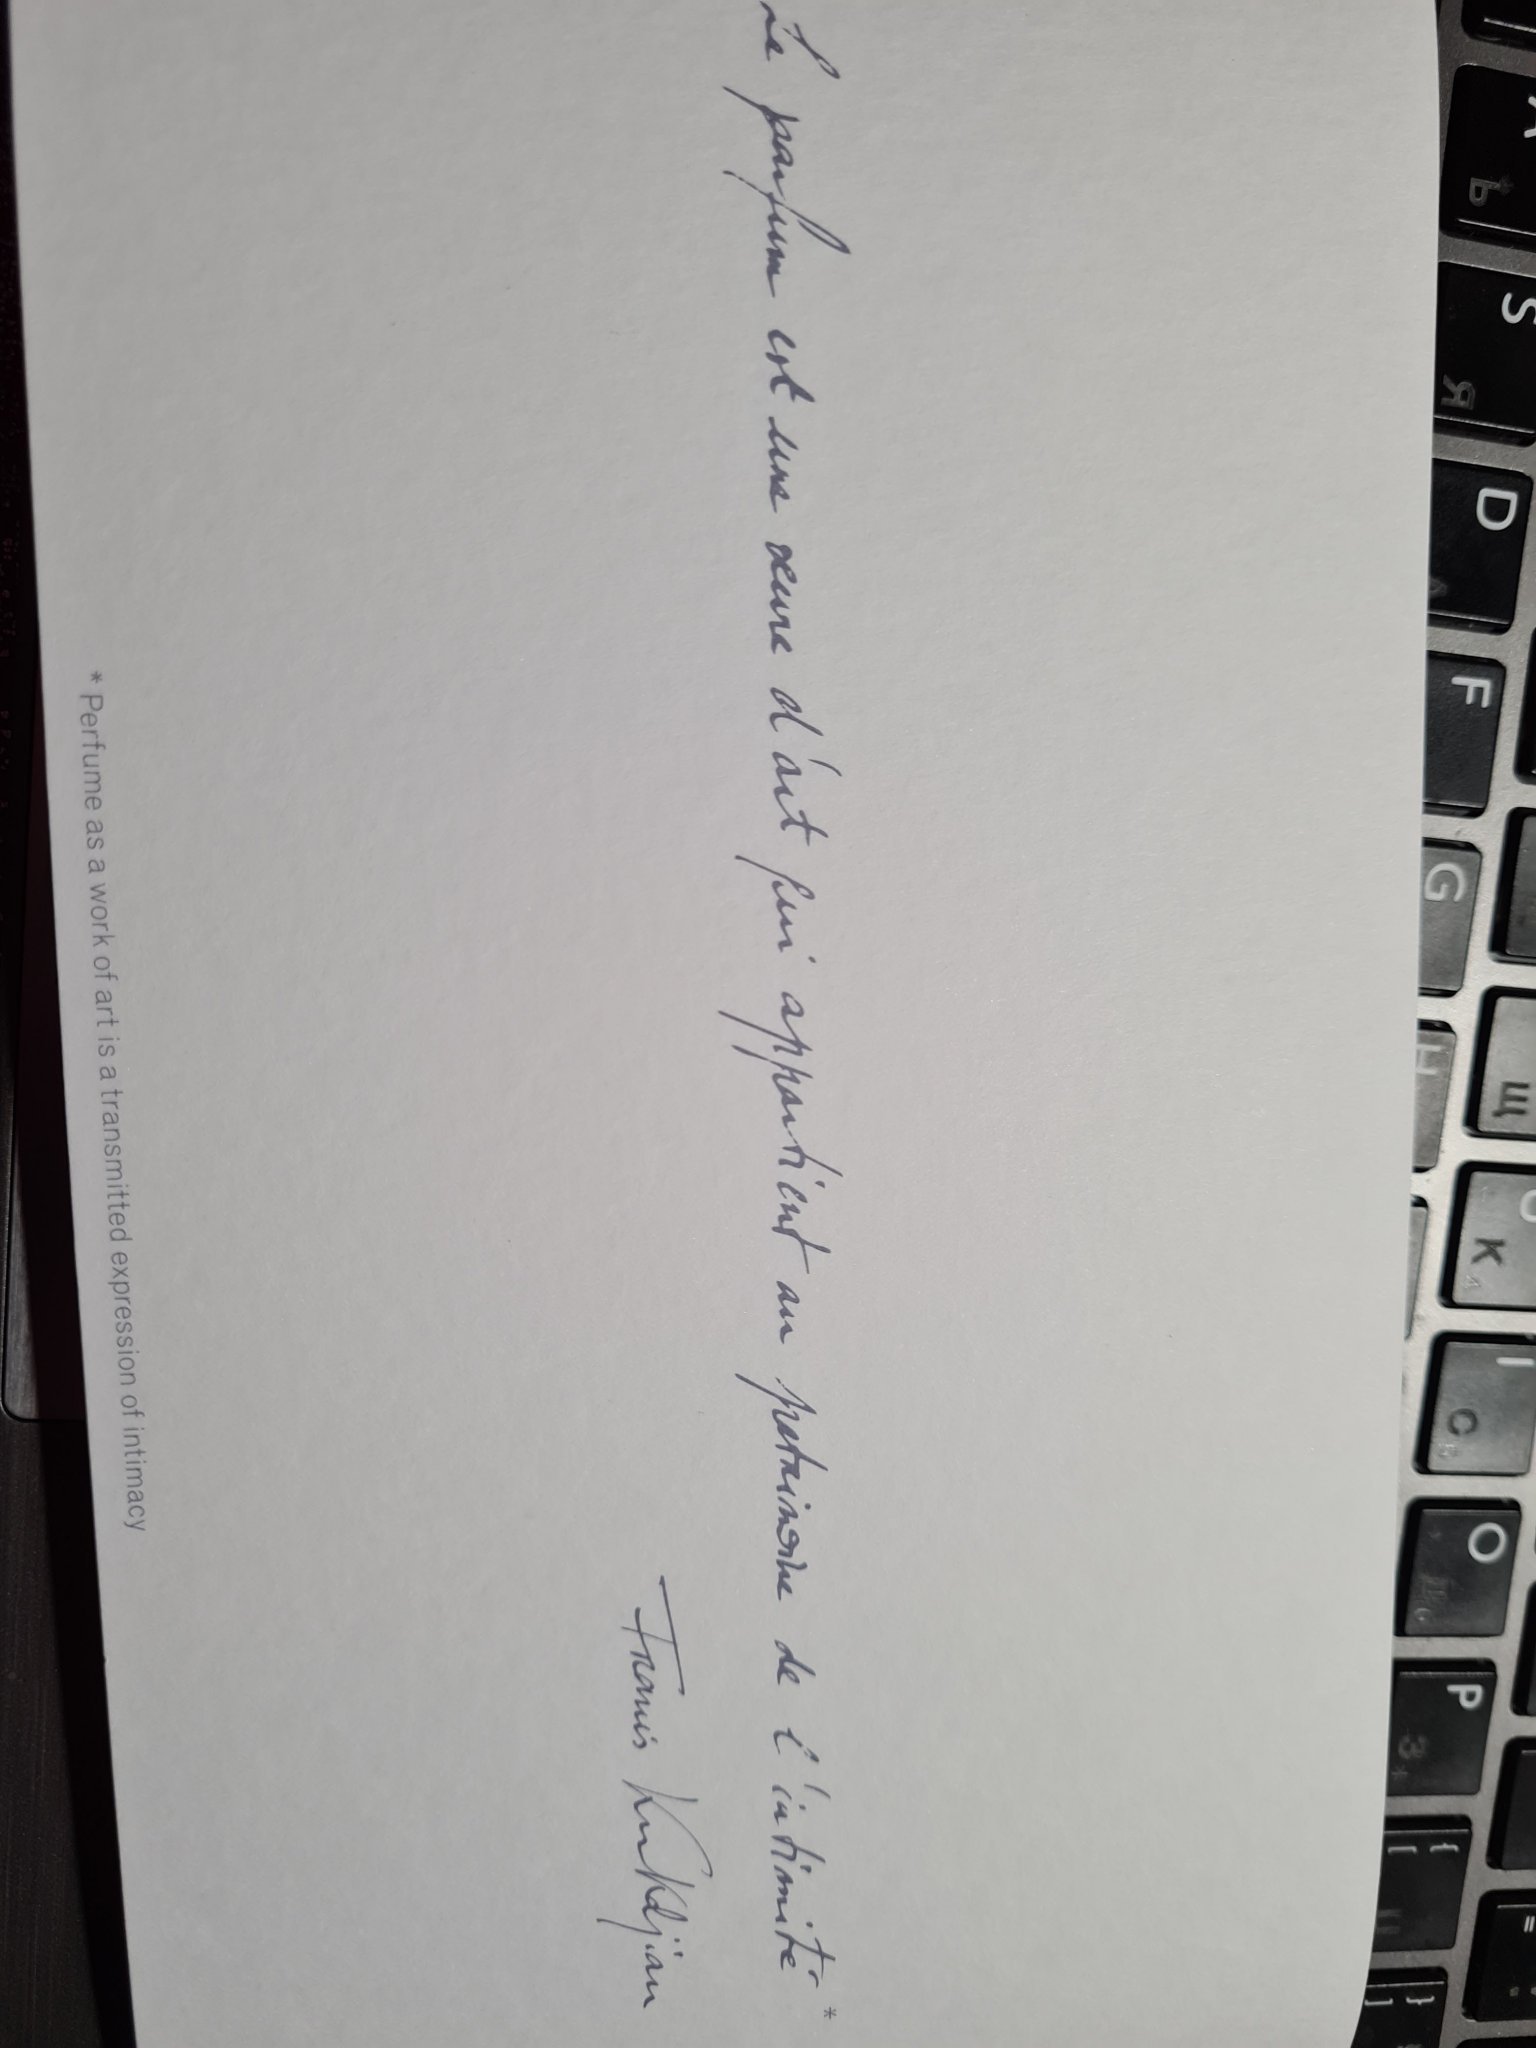 Le parfum est une œuvre d'art qui appartient au patrimoine de l'intimité*
Francis Kurkdjian
* Perfume as a work of art is a transmitted expression of intimacy
S Я
D
F
G
H
Щ
K
I С
O
P З
{ [
} ]